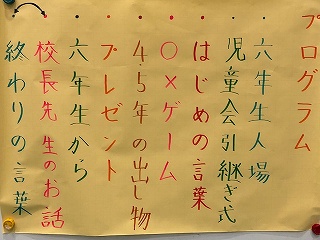 プログラム
・六年生入場
・児童会引継ぎ式
・はじめの言葉
・○×ゲーム
・4・5年の出し物
・プレゼント
・六年生から
・校長先生のお話
・終わりの言葉